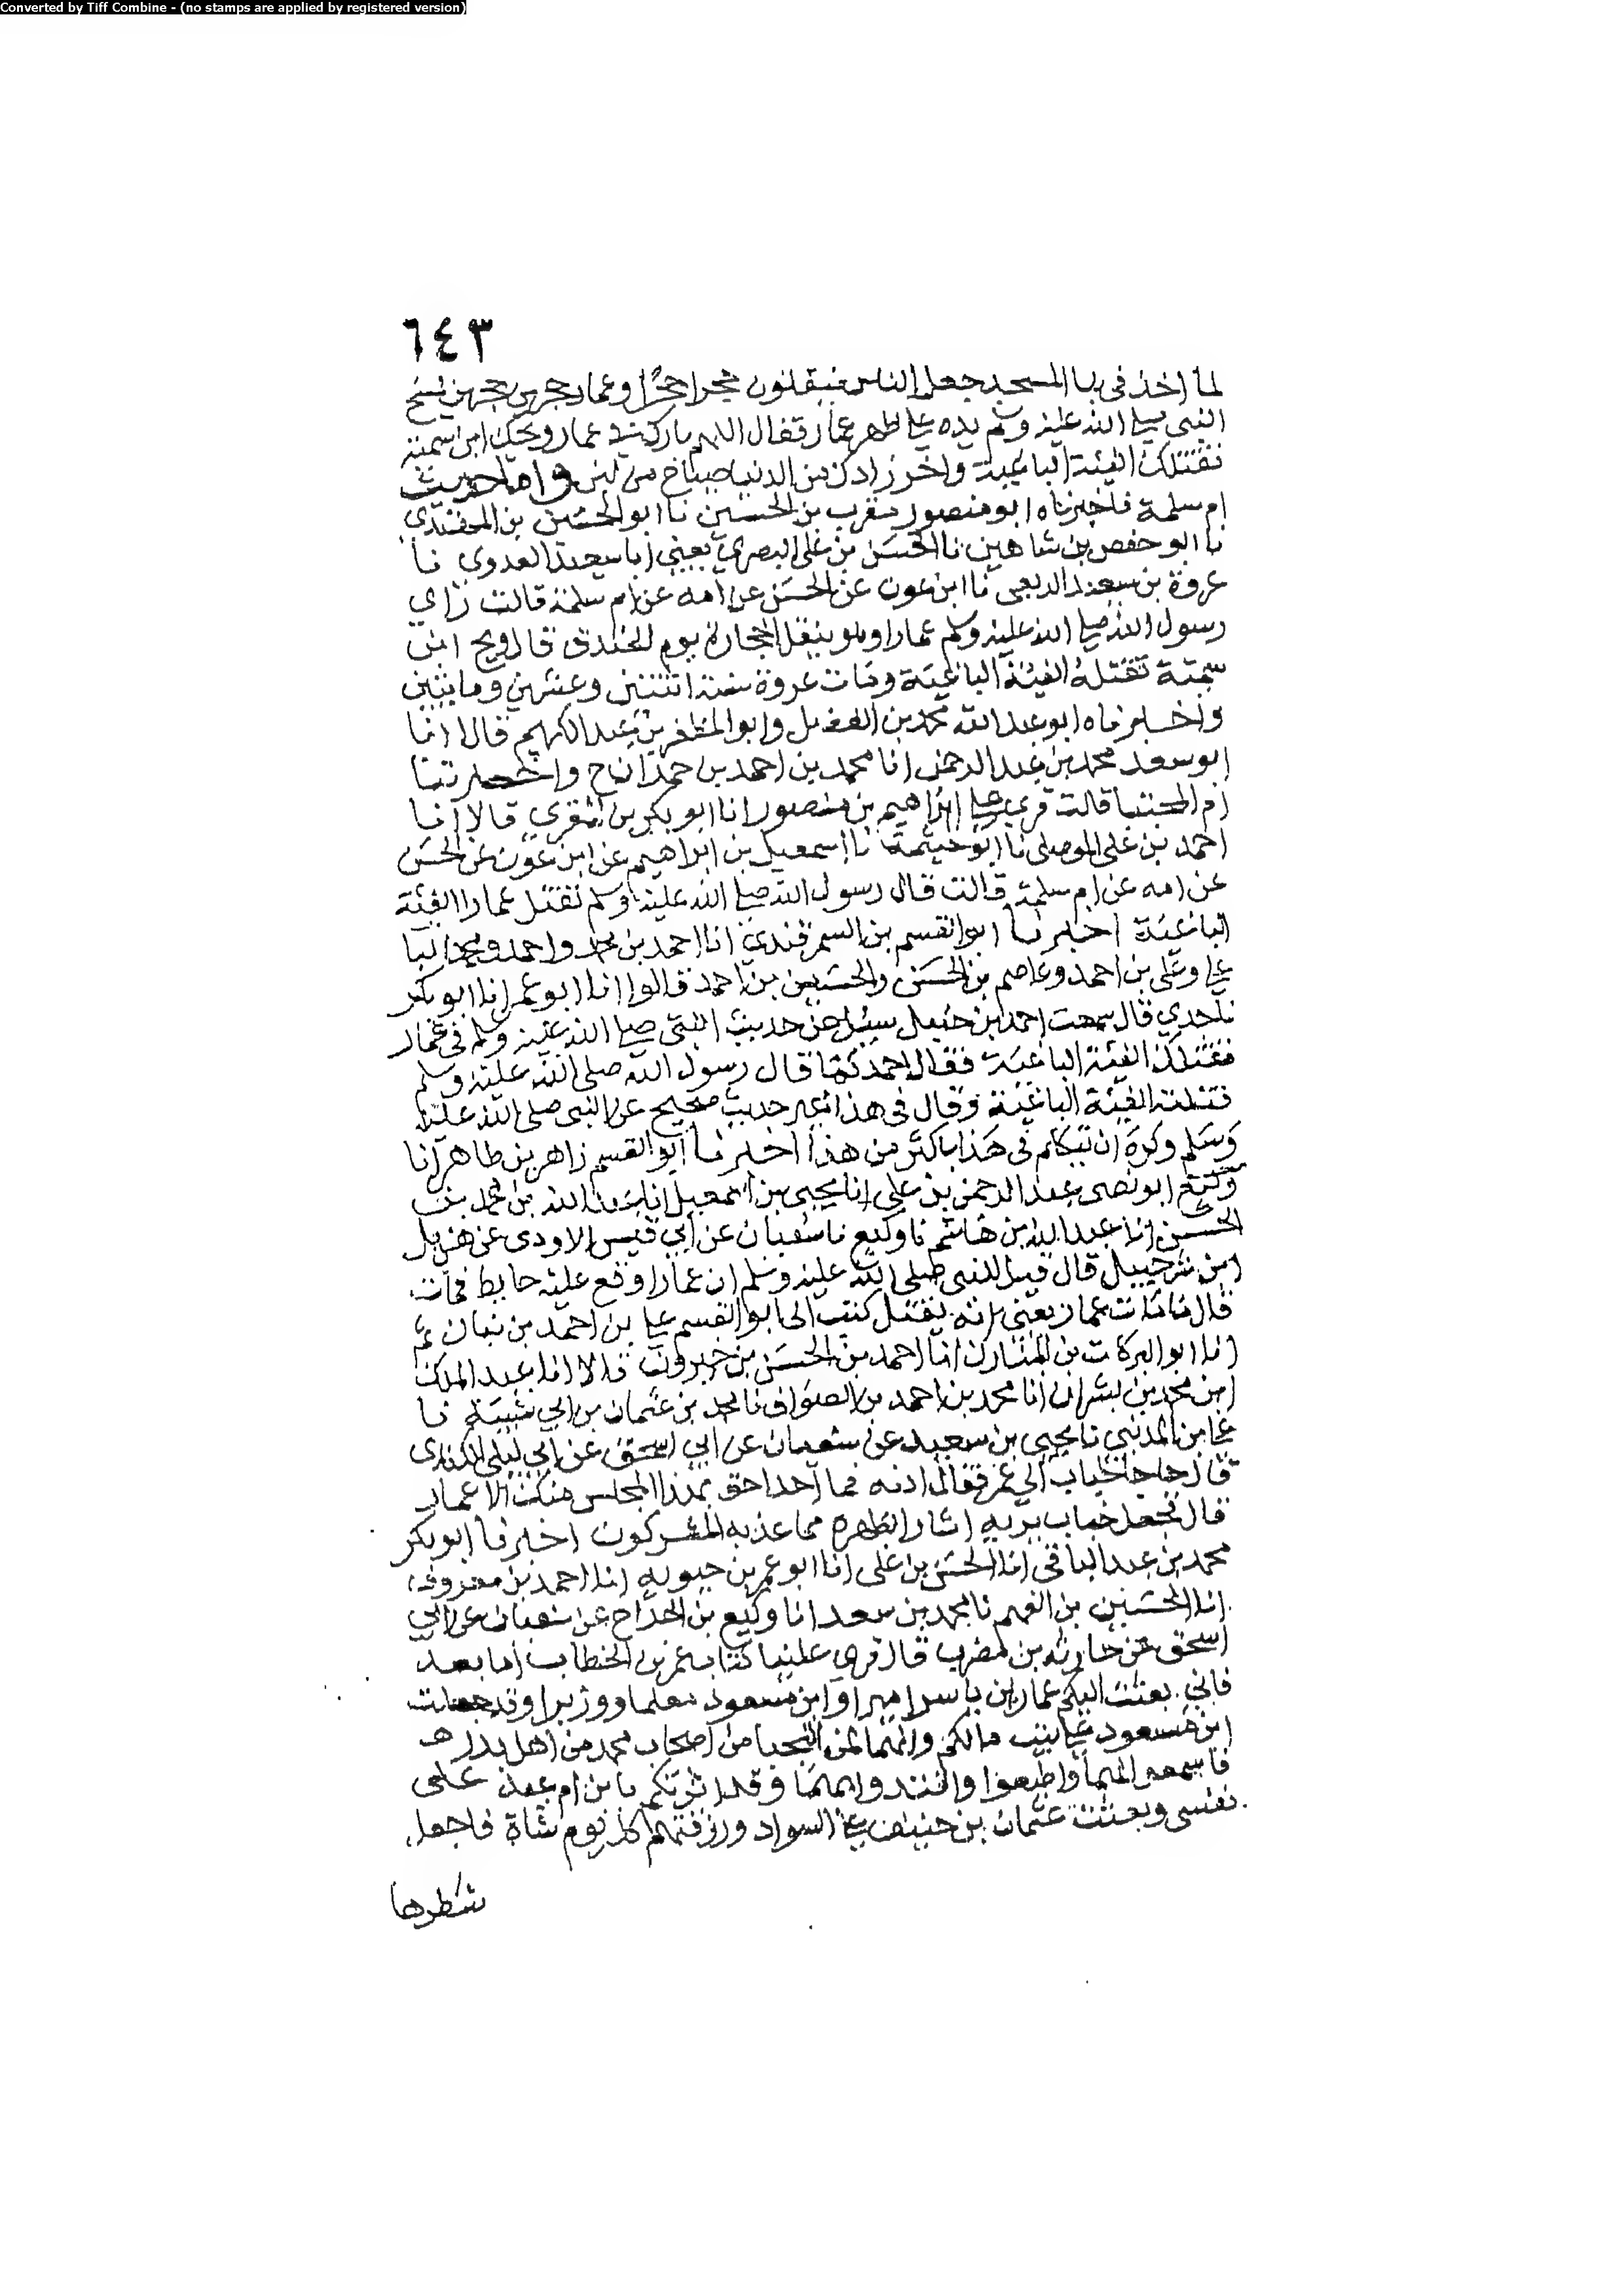 Converted by Tiff Combine - (no stamps are applied by registered version)
٦٤٣
لما اخذ فى بنا المسجد جعل الناس ينقلون حجرا حجرا وعمار حجرين حجرين فمسح
النبى صلى الله عليه وسلم يده على ظهر عمار فقال اللهم بارك فى عمار ويحك ابن سمية
تقتلك الفئة الباغية واخر زادك من الدنيا صياح من لبن واما حديث
ام سلمة فاخبرناه ابو منصور مقرب بن الحسين نا ابو الحسين بن المهتدي
نا ابو حفص بن شاهين نا الحسن بن على البصري يعني ابا سعيد العدوي نا
عروة بن سعيد الربعى نا ابن عون عن الحسن عن امه عن ام سلمة قالت راي
رسول الله صلى الله عليه وسلم عمارا وهو ينقل الحجارة يوم الخندق قال ويح ابن
سمية تقتله الفئة الباغية ومات عروة سنة اثنتين وعشرين ومايتين
واخبرناه ابو عبد الله محمد بن الفضل وابو المظفر بن عبد الكريم قالا انا
ابو سعد محمد بن عبد الرحمن انا محمد بن احمد بن حمدان ح واخبرتنا
ام المجتبا قالت قري على ابراهيم بن منصور انا ابو بكر بن المقري قالا انا
احمد بن على الموصلى نا ابو خيثمة نا اسمعيل بن ابراهيم عن ابن عون عن الحسن
عن امه عن ام سلمة قالت قال رسول الله صلى الله عليه وسلم تقتل عمارا الفئة
الباغية اخبرنا ابو القسم بن السمرقندي انا احمد بن واحمد ومحمد ابنا
على وعلى بن احمد وعاصم بن الحسن والحسين بن احمد قالوا انا ابو عمر انا ابو بكر
نا جدي قال سمعت احمد بن حنبل سئل عن حديث النبى صلى الله عليه وسلم فى عمار
تقتلك الفئة الباغية فقال احمد كما قال رسول الله صلى الله عليه وسلم
قتلته الفئة الباغية وقال فى هذا غير حديث صحيح عن النبى صلى الله عليه
وسلم وكره ان يتكلم فى هذا باكثر من هذا اخبرنا ابو القسم زاهر بن طاهر انا
ابو نصر عبد الرحمن بن على انا يحيى بن اسمعيل انا عبد الله بن محمد بن
الحسن انا عبد الله بن هاشم نا وكيع نا سفيان عن ابي قيس الاودى عن هزيل
ابن شرحبيل قال قيل للنبى صلى الله عليه وسلم ان عمارا وقع عليه حايط فمات
قال ما مات عمار يعني انه يقتل كتب الى ابو القسم على بن احمد بن بيان ثم
انا ابو البركات بن المبارك انا احمد بن الحسن بن خيرون قالا انا عبد الملك
ابن محمد بن بشران انا محمد بن احمد بن الصواف نا محمد بن عثمان بن ابي شيبة نا
على بن المديني نا يحيى بن سعيد عن سفيان عن ابي اسحق عن ابي ليلى الكندى
قال جا خباب الى عمر فقال ادنه فما احد احق بهذا المجلس منك الا عمار
قال فجعل خباب يريه اثار ا بظهره مما عذبه المشركون اخبرنا ابو بكر
محمد بن عبد الباقى انا الحسن بن على انا ابو عمر بن حيويه انا احمد بن معروف
انا الحسين بن الفهم نا محمد بن سعد انا وكيع بن الجراح عن سفيان عن ابي
اسحق عن حارثه بن مضرب قال قرى علينا كتاب عمر بن الخطاب اما بعد
فاني بعثت اليكم عمار بن ياسر اميرا وابن مسعود معلما ووزيرا وقد جعلت
ابن مسعود على بيت مالكم وانهما لمن النجبا من اصحاب محمد من اهل بدر
فاسمعوا لهما واطيعوا واقتدوا بهما وقد اثرتكم بابن ام عبد على
نفسى وبعثت عثمان بن حنيف على السواد ورزقتهم كل يوم شاة فاجعل
شطرها